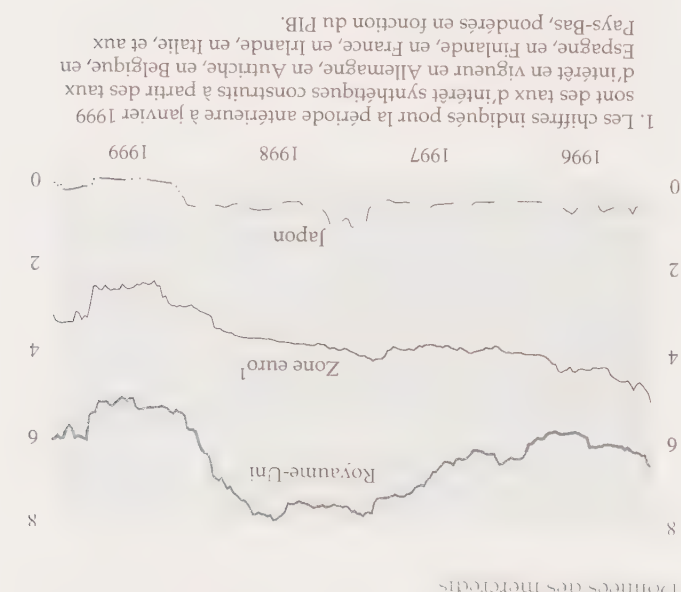 Données des mercredis
8 8
Royaume-Uni
6 6
Zone euro¹
4 4
2 2
Japon
0 0
1996 1997 1998 1999
1. Les chiffres indiqués pour la période antérieure à janvier 1999
sont des taux d'intérêt synthétiques construits à partir des taux
d'intérêt en vigueur en Allemagne, en Autriche, en Belgique, en
Espagne, en Finlande, en France, en Irlande, en Italie, et aux
Pays-Bas, pondérés en fonction du PIB.